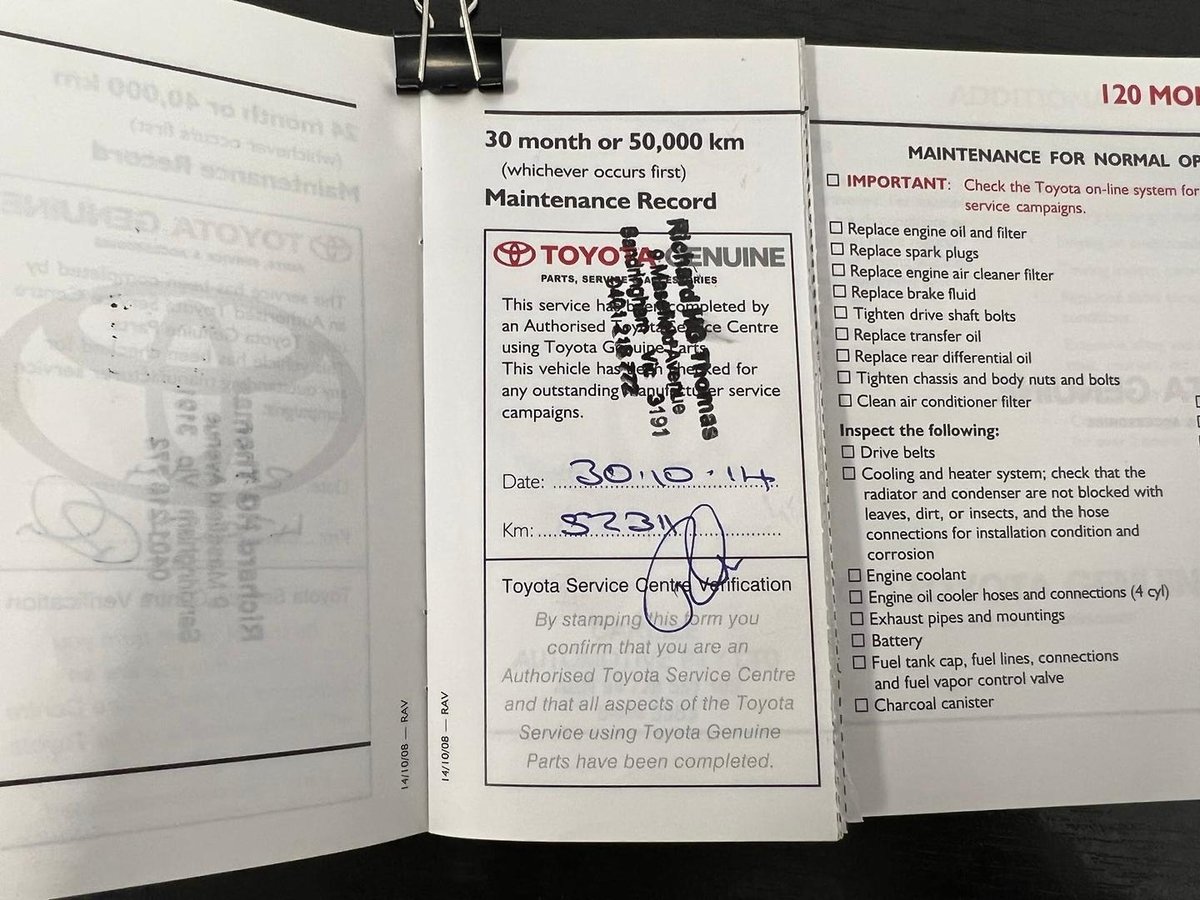 30 month or 50,000 km
(whichever occurs first)
Maintenance Record
TOYOTA GENUINE
PARTS, SERVICE & ACCESSORIES
This service has been completed by
an Authorised Toyota Service Centre
using Toyota Genuine Parts.
This vehicle has been checked for
any outstanding manufacturer service
campaigns.
Richard HG Thomas
Avenue
Sandringham VIC 3191
Date: 30.10.14
Km: 52311
Toyota Service Centre Verification
By stamping this form you
confirm that you are an
Authorised Toyota Service Centre
and that all aspects of the Toyota
Service using Toyota Genuine
Parts have been completed.
14/10/08 — RAV
14/10/08 — RAV
120 MO
MAINTENANCE FOR NORMAL OP
IMPORTANT: Check the Toyota on-line system for
service campaigns.
Replace engine oil and filter
Replace spark plugs
Replace engine air cleaner filter
Replace brake fluid
Tighten drive shaft bolts
Replace transfer oil
Replace rear differential oil
Tighten chassis and body nuts and bolts
Clean air conditioner filter
Inspect the following:
Drive belts
Cooling and heater system; check that the
radiator and condenser are not blocked with
leaves, dirt, or insects, and the hose
connections for installation condition and
corrosion
Engine coolant
Engine oil cooler hoses and connections (4 cyl)
Exhaust pipes and mountings
Battery
Fuel tank cap, fuel lines, connections
and fuel vapor control valve
Charcoal canister